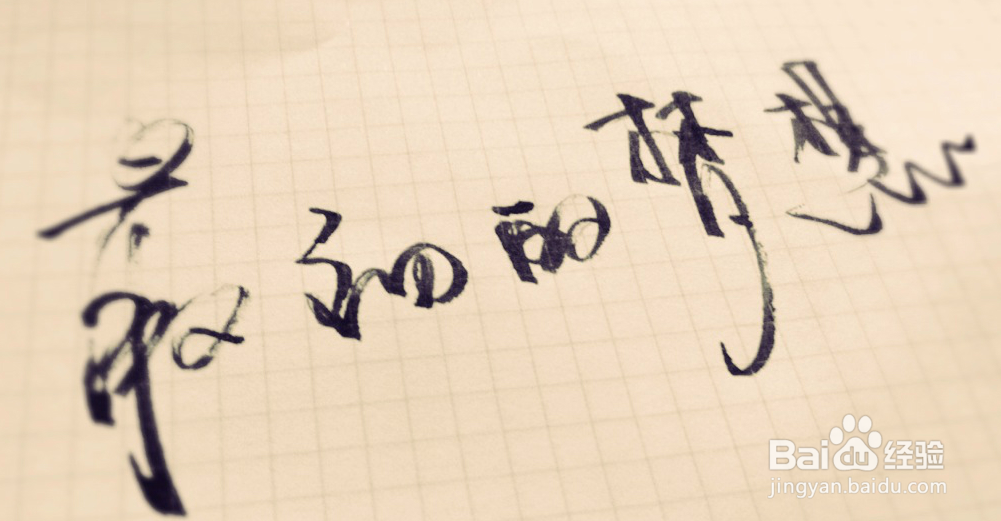 最初的梦想
Baidu 经验
jingyan.baidu.com